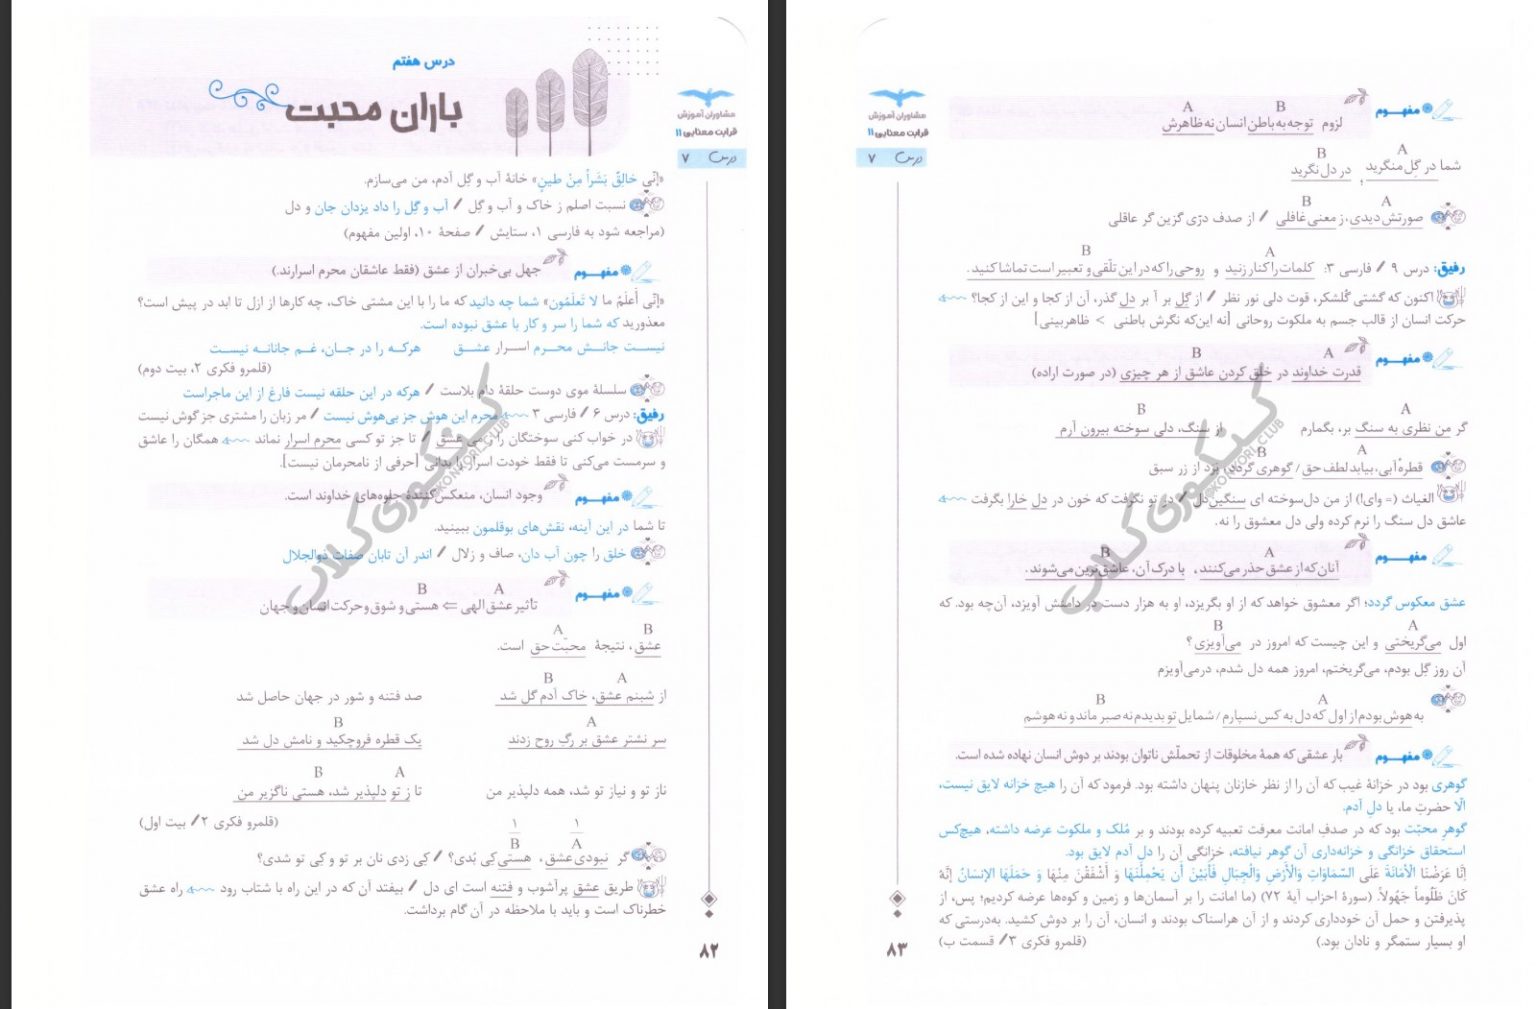 درس هفتم
باران محبت
مشاوران آموزش
قرابت معنایی ۱۱
درس ۷
«اِنّی خالِقٌ بَشَراً مِنْ طینٍ» خانهٔ آب و گِل آدم، من می‌سازم.
نسبت اصلم ز خاک و آب و گِل / آب و گِل را داد یزدان جان و دل
(مراجعه شود به فارسی ۱، ستایش / صفحهٔ ۱۰، اولین مفهوم)
مفهوم جهل بی‌خبران از عشق (فقط عاشقان محرم اسرارند.)
«اِنّی أَعلَمُ ما لا تَعلَمُون» شما چه دانید که ما را با این مشتی خاک، چه کارها از ازل تا ابد در پیش است؟
معذورید که شما را سر و کار با عشق نبوده است.
نیست جانش محرم اسرار عشق هرکه را در جان، غم جانانه نیست
(قلمرو فکری ۲، بیت دوم)
سلسلهٔ موی دوست حلقهٔ دام بلاست / هرکه در این حلقه نیست فارغ از این ماجراست
رفیق: درس ۶ / فارسی ۳ محرم این هوش جز بی‌هوش نیست / مر زبان را مشتری جز گوش نیست
در خواب کنی سوختگان را ز می عشق / تا جز تو کسی محرم اسرار نماند همگان را عاشق
و سرمست می‌کنی تا فقط خودت اسرار را بدانی [حرفی از نامحرمان نیست].
مفهوم وجود انسان، منعکس‌کننده جلوه‌های خداوند است.
تا شما در این آینه، نقش‌های بوقلمون ببینید.
خلق را چون آب دان، صاف و زلال / اندر آن تابان صفات ذوالجلال
A B
مفهوم تأثیر عشق الهی ⇐ هستی و شوق و حرکت انسان و جهان
B A
عشق، نتیجهٔ محبّت حق است.
A B
از شبنم عشق، خاک آدم گل شد صد فتنه و شور در جهان حاصل شد
A B
سر نشتر عشق بر رگ روح زدند یک قطره فروچکید و نامش دل شد
A B
ناز تو و نیاز تو شد، همه دلپذیر من تا ز تو دلپذیر شد، هستی ناگزیر من
(قلمرو فکری ۲ / بیت اول)
۱ ۱
A B
گر نبودی عشق، هستی کِی بُدی؟ / کِی زدی نان بر تو و کِی تو شدی؟
طریق عشق پرآشوب و فتنه است ای دل / بیفتد آن که در این راه با شتاب رود راه عشق
خطرناک است و باید با ملاحظه در آن گام برداشت.
۸۲
مشاوران آموزش
قرابت معنایی ۱۱
درس ۷
B A
مفهوم لزوم توجه به باطن انسان نه ظاهرش
A B
شما در گِل منگرید، در دل نگرید
A B
صورتش دیدی، ز معنی غافلی / از صدف درّی گزین گر عاقلی
A B
رفیق: درس ۹ / فارسی ۳: کلمات را کنار زنید و روحی را که در این تلقّی و تعبیر است تماشا کنید.
اکنون که گشتی گُلشکر، قوت دلی نور نظر / از گِل بر آ بر دل گذر، آن از کجا و این از کجا؟
حرکت انسان از قالب جسم به ملکوت روحانی [نه این‌که نگرش باطنی > ظاهربینی]
A B
مفهوم قدرت خداوند در خلق کردن عاشق از هر چیزی (در صورت اراده)
A B
گر من نظری به سنگ بر، بگمارم از سنگ، دلی سوخته بیرون آرم
A B
قطره‌ٔ آبی، بیابد لطف حق / گوهری گردد، برد از زر سبق
الغیاث (= وای!) از من دل‌سوخته ای سنگین‌دل / در تو نگرفت که خون در دل خارا بگرفت
عاشق دل سنگ را نرم کرده ولی دل معشوق را نه.
A B
مفهوم آنان که از عشق حذر می‌کنند، با درک آن، عاشق‌ترین می‌شوند.
عشق معکوس گردد؛ اگر معشوق خواهد که از او بگریزد، او به هزار دست در دامنش آویزد، آن‌چه بود، که
A B
اول می‌گریختی و این چیست که امروز در می‌آویزی؟
آن روز گِل بودم، می‌گریختم، امروز همه دل شدم، درمی‌آویزم
A B
به هوش بودم از اول که دل به کس نسپارم / شمایل تو بدیدم نه صبر ماند و نه هوشم
مفهوم بار عشقی که همهٔ مخلوقات از تحمّلش ناتوان بودند بر دوش انسان نهاده شده است.
گوهری بود در خزانهٔ غیب که آن را از نظر خازنان پنهان داشته بود. فرمود که آن را هیچ خزانه لایق نیست،
الّا حضرتِ ما، یا دلِ آدم.
گوهر محبّت بود که در صدفِ امانت معرفت تعبیه کرده بودند و بر مُلک و ملکوت عرضه داشته، هیچ‌کس
استحقاق خزانگی و خزانه‌داری آن گوهر نیافته، خزانگی آن را دل آدم لایق بود.
اِنَّا عَرَضْنَا الْأَمَانَةَ عَلَى السَّمَاوَاتِ وَالْأَرْضِ وَالْجِبَالِ فَأَبَيْنَ أَن يَحْمِلْنَهَا وَ أَشْفَقْنَ مِنْهَا وَ حَمَلَهَا الإنسَانُ إِنَّهُ
كَانَ ظَلُوماً جَهُولاً. (سورهٔ احزاب آیهٔ ۷۲) (ما امانت را بر آسمان‌ها و زمین و کوه‌ها عرضه کردیم؛ پس، از
پذیرفتن و حمل آن خودداری کردند و از آن هراسناک بودند و انسان، آن را بر دوش کشید. به‌درستی که
او بسیار ستمگر و نادان بود.) (قلمرو فکری ۳ / قسمت ب)
۸۳
کنکوری کلاب
KONKORI CLUB
کنکوری کلاب
KONKORI CLUB